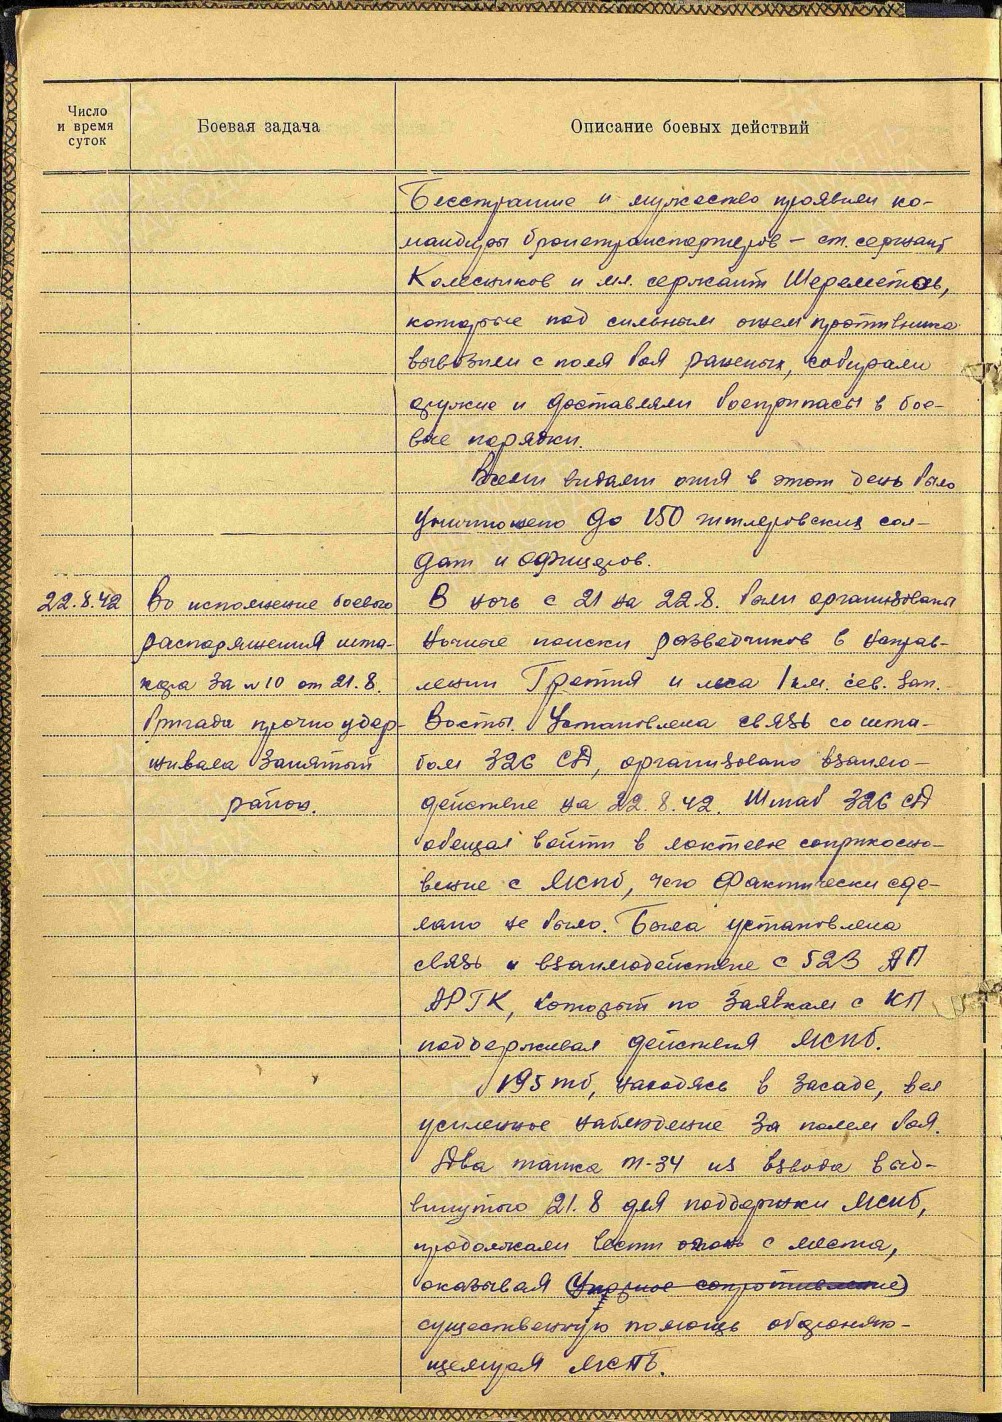 Число
и время
суток
Боевая задача
Описание боевых действий
Бесстрашие и мужество проявили ко-
мандиры бронетранспортеров – ст. сержант
Колесников и мл. сержант Шереметов,
которые под сильным огнем противника
вывозили с поля боя раненых, собирали
оружие и доставляли боеприпасы в бое-
вые порядки.
Всеми видами огня в этот день было
уничтожено до 150 гитлеровских сол-
дат и офицеров.
22.8.42
Во исполнение боевого
распоряжения шта-
за №10 от 21.8.
бригада прочно удер-
живала занятый
район.
В ночь с 21 на 22.8. были организованы
ночные поиски разведчиков в направ-
лении Гретня и леса 1 км. сев. зап.
Восты. Установлена связь со шта-
бом 326 СД, организовано взаимо-
действие на 22.8.42. Штаб 326 СД
обещал войти в локтевое соприкосно-
вение с МСПБ, чего фактически сде-
лано не было. Была установлена
связь и взаимодействие с 523 АП
АРГК, который по заявкам с КП
поддерживал действия МСПБ.
195 тб, находясь в засаде, вел
усиленное наблюдение за полем боя.
Два танка Т-34 из взвода выд-
винутого 21.8 для поддержки МСПБ,
продолжали вести огонь с места,
оказывая (упорное сопротивление)
существенную помощь обороняю-
щемуся МСПБ.